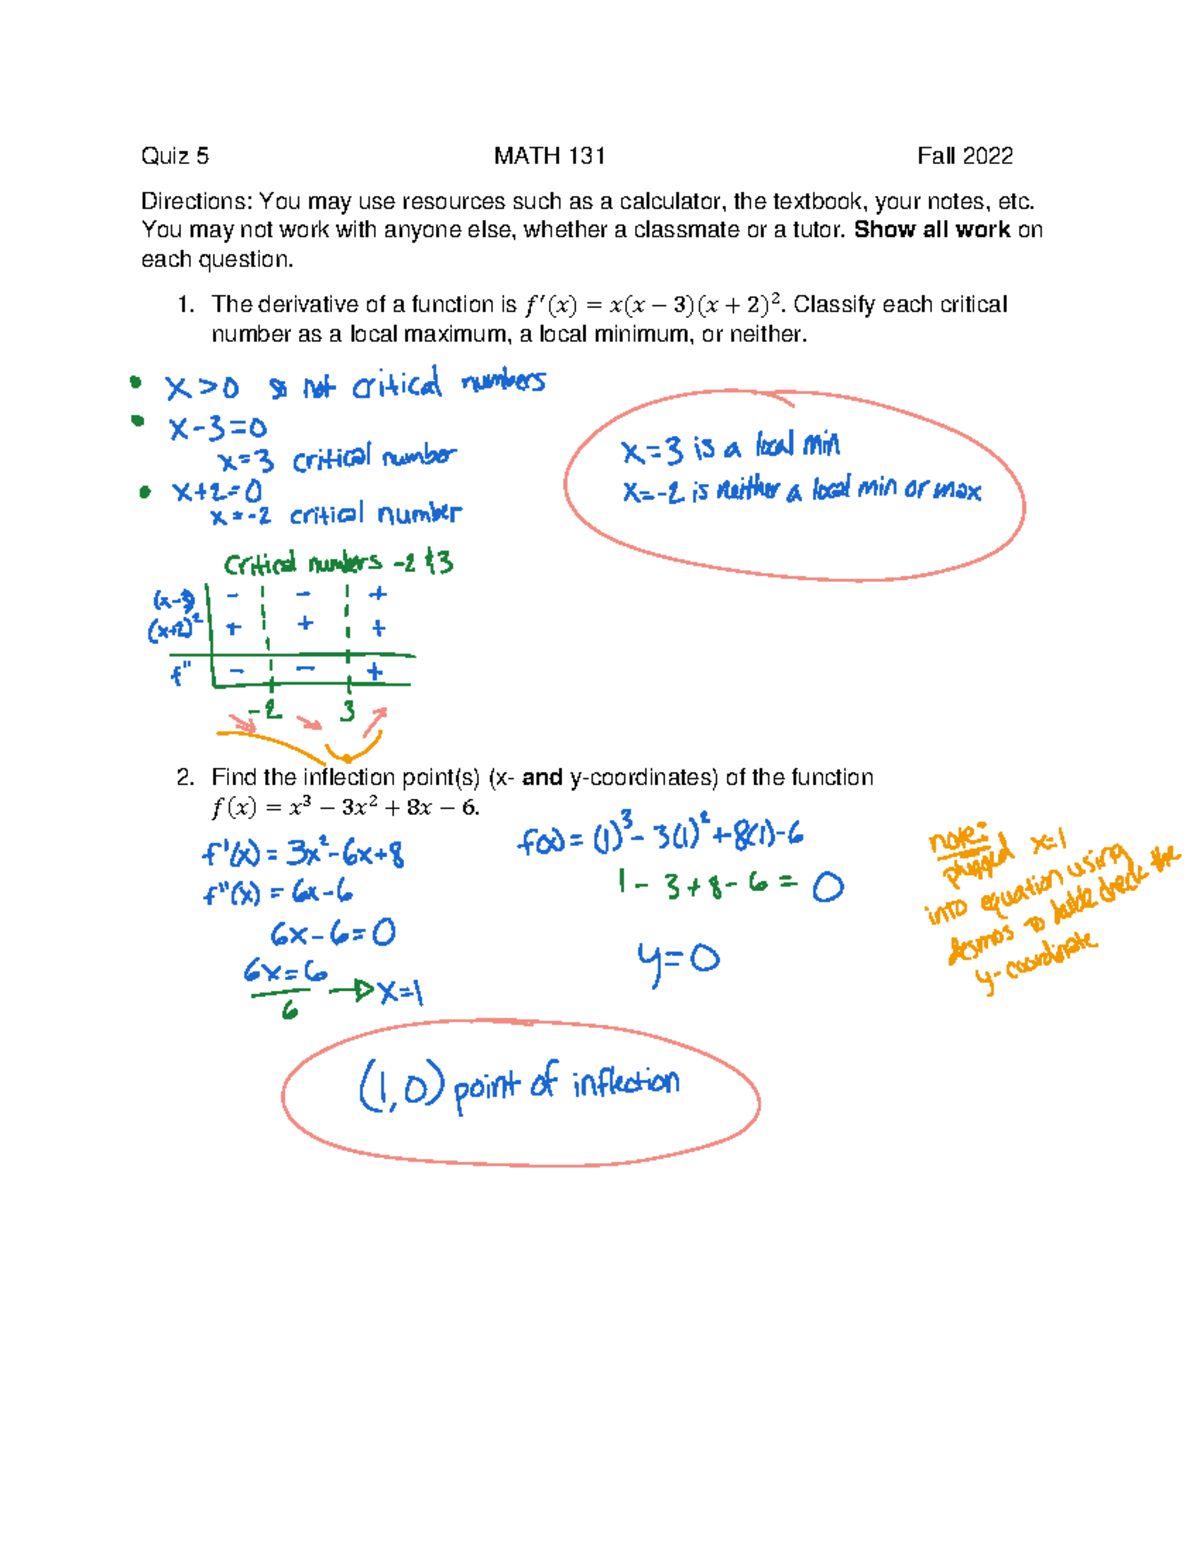 Quiz 5 MATH 131 Fall 2022
Directions: You may use resources such as a calculator, the textbook, your notes, etc.
You may not work with anyone else, whether a classmate or a tutor. Show all work on
each question.
1. The derivative of a function is f′(x) = x(x − 3)(x + 2)². Classify each critical
number as a local maximum, a local minimum, or neither.
• x>0 is not critical numbers
• x-3=0
x=3 critical number
• x+2=0
x=-2 critical number
x=3 is a local min
x=-2 is neither a local min or max
critical numbers -2 & 3
(x-3) - - +
(x+2)² + + +
f" - - +
-2 3
2. Find the inflection point(s) (x- and y-coordinates) of the function
f(x) = x³ − 3x² + 8x − 6.
f'(x) = 3x²-6x+8
f"(x) = 6x-6
6x-6=0
6x=6
6 x=1
f(x) = (1)³-3(1)²+8(1)-6
1-3+8-6= 0
y=0
note:
plugged x=1
into equation using
desmos to double check the
y-coordinate
(1,0) point of inflection